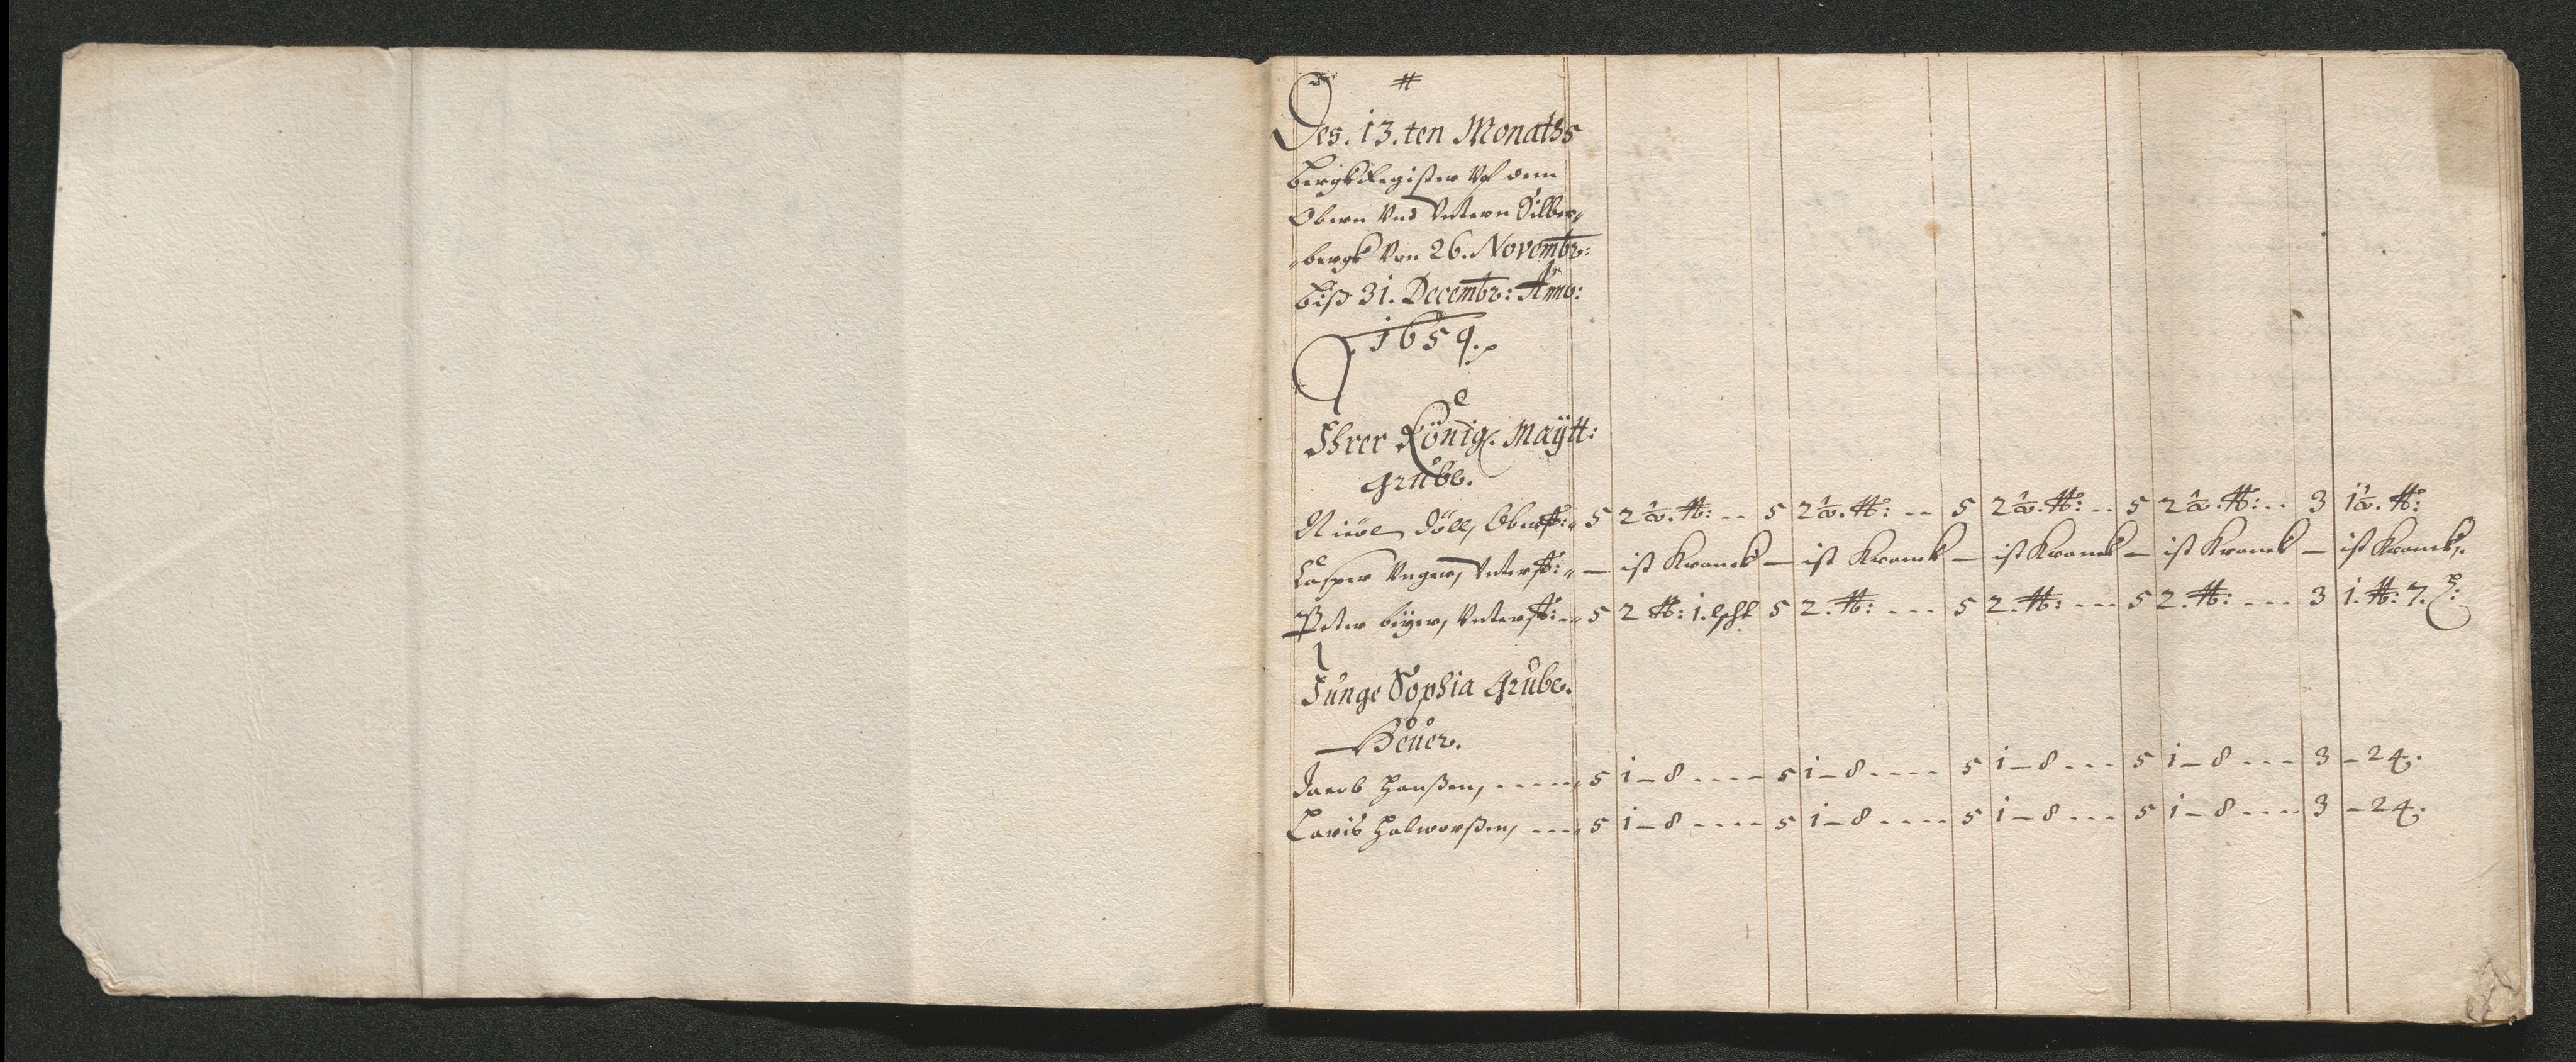 Des. 13.ten Monaths
Bergk Register Vf dem
Obern Und Untern Silber,,
,,bergk Von 26. Novembr:
biß 31. Decembr: Anno:
1659.
Ihrer König. Maÿtt:
Grube.
Döll, Oberst:,, 5 2½. th: -- 5 2½. th: -- 5 2½. th: -- 5 2½. th: -- 3 1½. th:
Casper Unger, Unterst:,, — ist Kranck — ist Kranck — ist Kranck — ist Kranck — ist Kranck.
Peter Unterst: -,, 5 2 th: 1. 5 2. th: --- 5 2. th: --- 5 2. th: --- 3 1. th: 7. ß:
Junge Sophia Grube.
Heuer.
Jacob Hanßen, ----,, 5 1 — 8 ---- 5 1 — 8 ---- 5 1 — 8 --- 5 1 — 8 --- 3 — 24.
Lariß Halworßen, ---,, 5 1 — 8 ---- 5 1 — 8 ---- 5 1 — 8 --- 5 1 — 8 ---- 3 — 24.